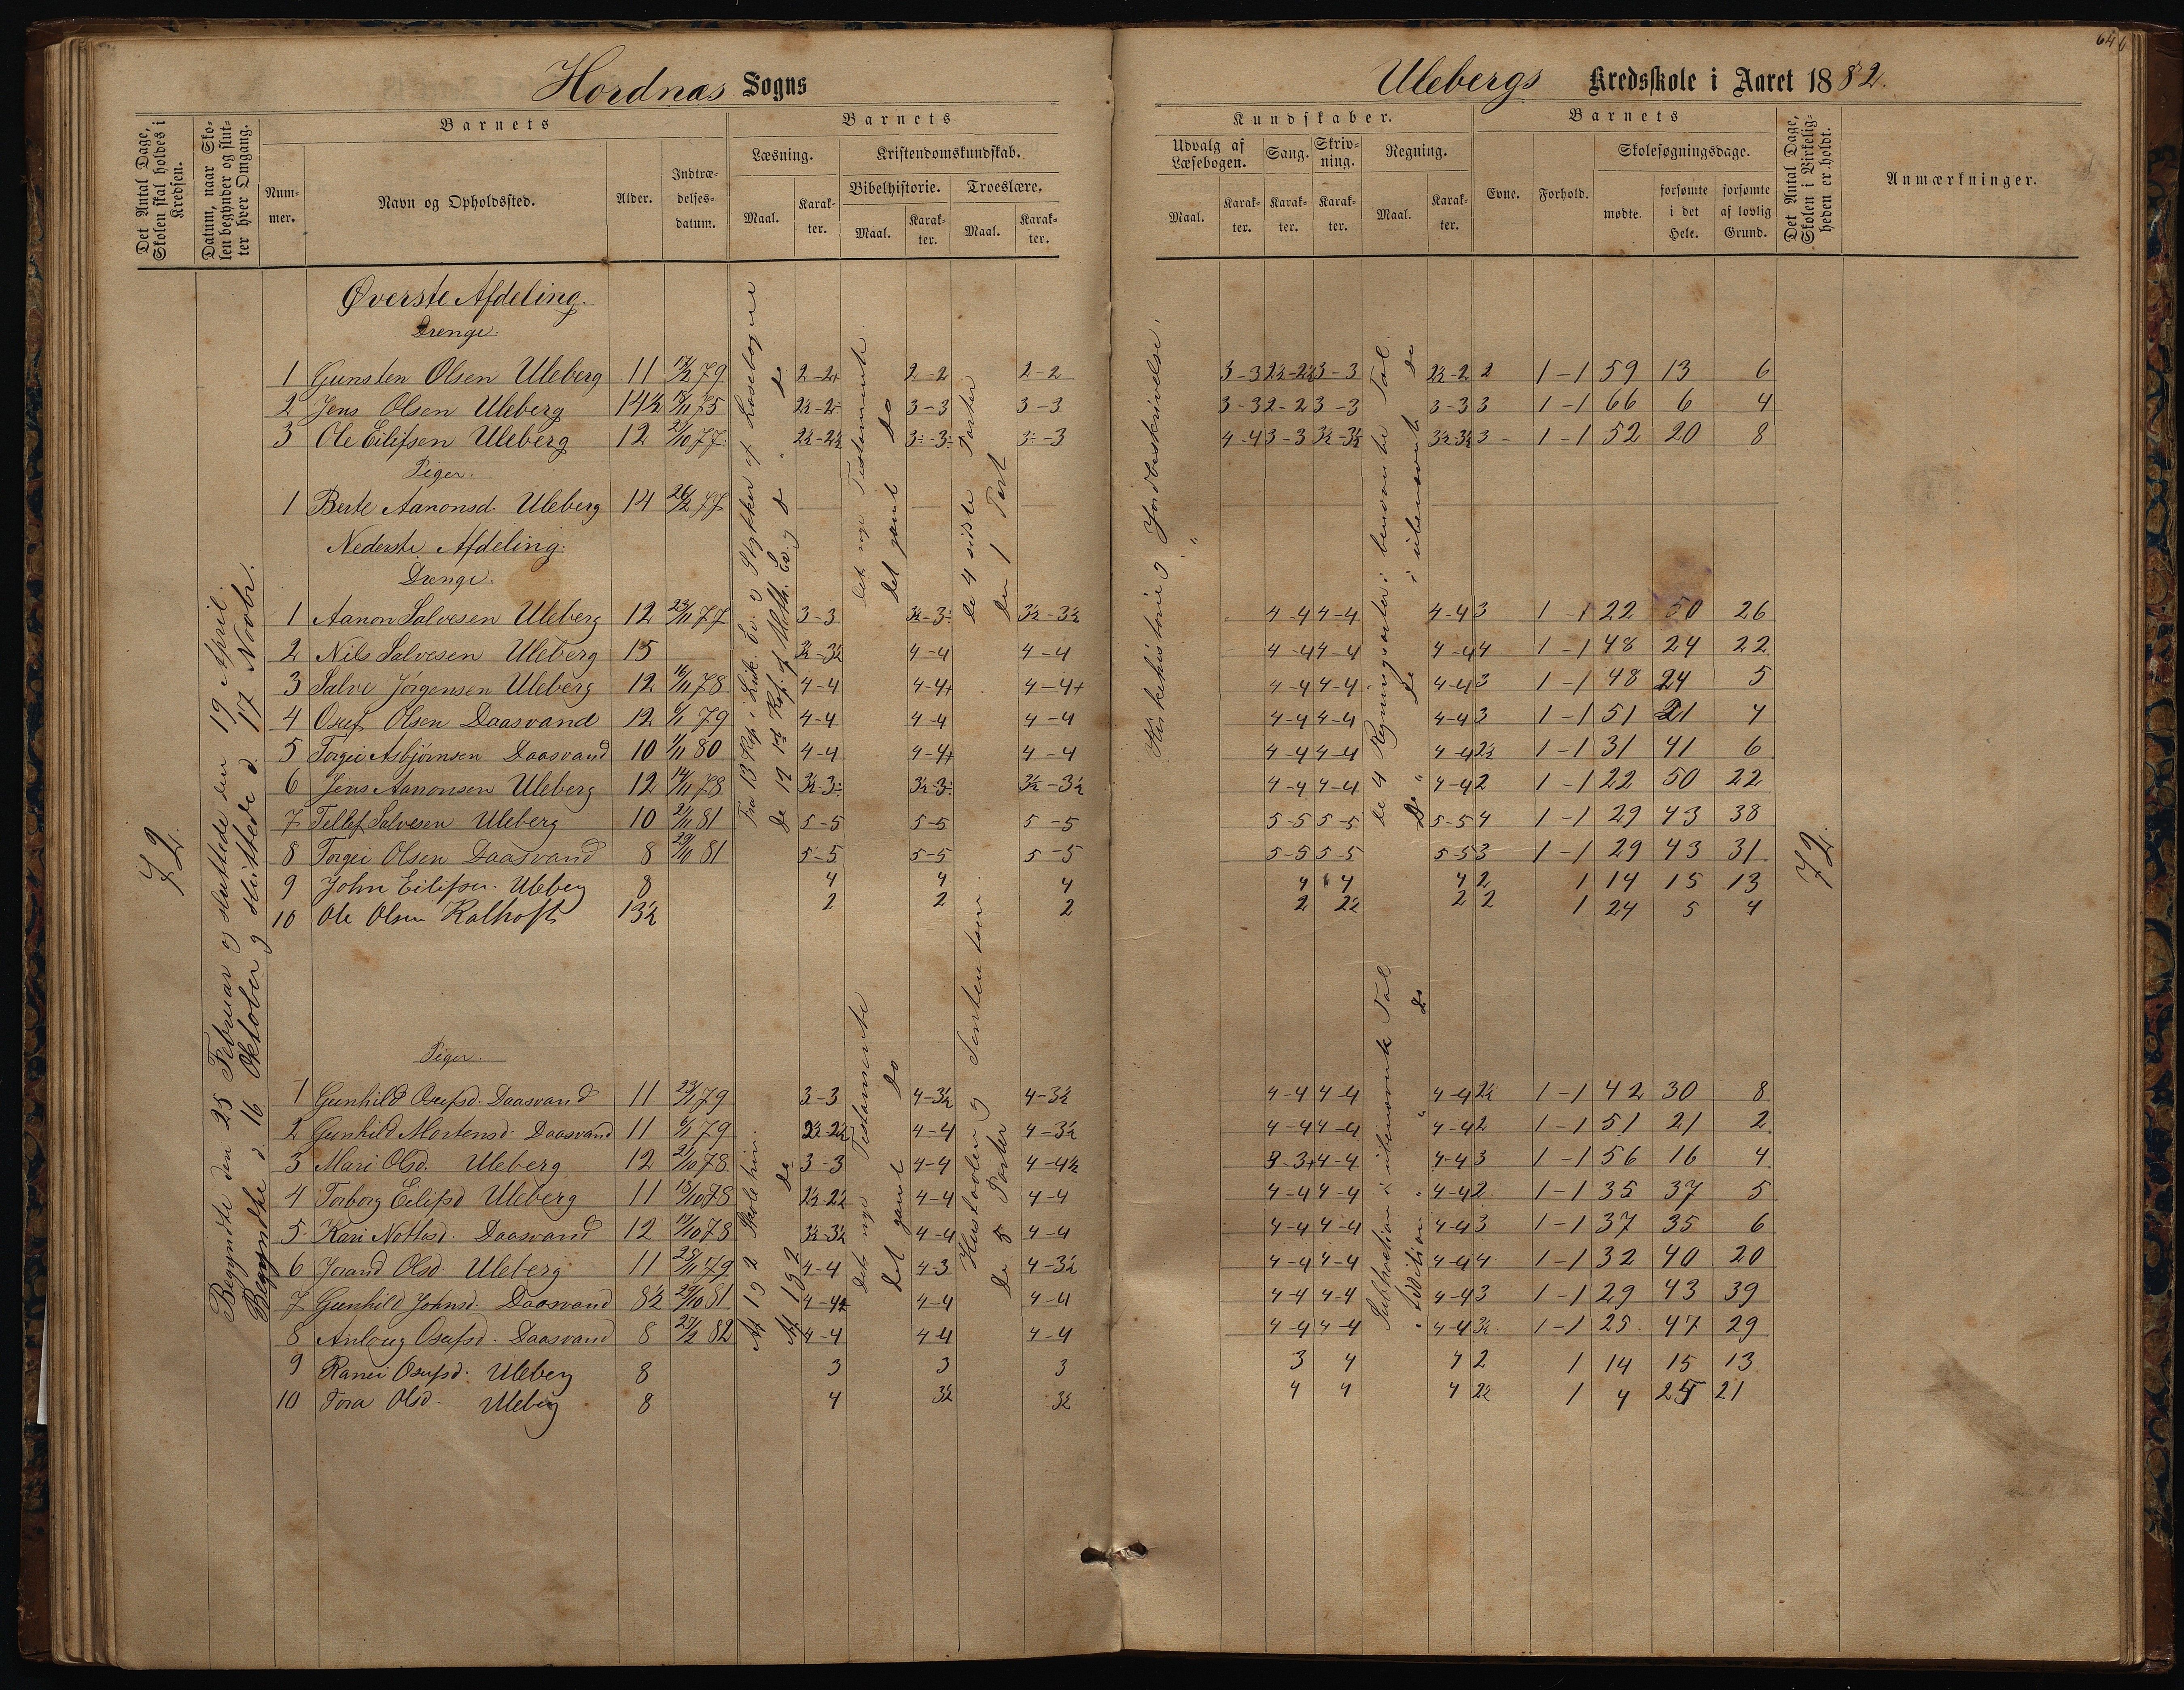 646
Hordnæs Sogns
Ulebergs Kredsskole i Aaret 1882.
Det Antal Dage, Skolen skal holdes i Kredsen.
Datum, naar Skolen begynder og slutter hver Omgang.
Barnets
Nummer.
Navn og Opholdssted.
Alder.
Indtrædelsesdatum.
Barnets
Læsning.
Kristendomskundskab.
Bibelhistorie.
Troeslære.
Maal.
Karakter.
Maal.
Karakter.
Maal.
Karakter.
Kundskaber.
Udvalg af Læsebogen.
Sang.
Skrivning.
Regning.
Maal.
Karakter.
Karakter.
Karakter.
Maal.
Karakter.
Barnets
Evne.
Forhold.
Skolesøgningsdage.
mødte.
forsømte i det Hele.
forsømte af lovlig Grund.
Det Antal Dage, Skolen i Virkeligheden er holdt.
Anmærkninger.
72.
Begyndte den 25 Februar og sluttede den 19 April.
Begyndte d. 16 Oktober og sluttede d. 17 Novbr.
Øverste Afdeling.
Drenge.
1 Gunsten Olsen Uleberg 11 79 2-2+ 2-2 2-2 3-3 2½-2½ 3-3 2½-2 2 1-1 59 13 6
2 Jens Olsen Uleberg 14½ 75 2½-2÷ 3-3 3-3 3-3 2-2 3-3 3-3 3 1-1 66 6 4
3 Ole Eilifsen Uleberg 12 21/10 77 2½-2½ 3÷-3÷ 3÷-3 4-4 3-3 3½-3½ 3½-3½ 3 1-1 52 20 8
Piger.
1 Berte Aanonsd. Uleberg 14 26/2 77
Nederste Afdeling.
Drenge.
1 Aanon Salvesen Uleberg 12 23/11 77 3-3 3½-3÷ 3½-3½ 4-4 4-4 4-4 3 1-1 22 50 26
2 Nils Salvesen Uleberg 15 3½-3½ 4-4 4-4 4-4 4-4 4-4 4 1-1 48 24 22
3 Salve Jörgensen Uleberg 12 16/11 78 4-4 4-4+ 4-4+ 4-4 4-4 4-4 3 1-1 48 24 5
4 Osuf Olsen Daasvand 12 79 4-4 4-4 4-4 4-4 4-4 4-4 3 1-1 51 21 4
5 Torgei Asbjørnsen Daasvand 10 80 4-4 4-4+ 4-4 4-4 4-4 4-4 2½ 1-1 31 41 6
6 Jens Aanonsen Uleberg 12 14/11 78 3½-3÷ 3½-3÷ 3½-3½ 4-4 4-4 4-4 2 1-1 22 50 22
7 Tellef Salvesen Uleberg 10 21/11 81 5-5 5-5 5-5 5-5 5-5 5-5 4 1-1 29 43 38
8 Torgei Olsen Daasvand 8 81 5-5 5-5 5-5 5-5 5-5 5-5 3 1-1 29 43 31
9 John Eilifsen Uleberg 8 4 4 4 4 4 4 2 1 14 15 13
10 Ole Olsen Kalhoft 13½ 2 2 2 2 2½ 2 2 1 24 5 4
Piger.
1 Gunhild Osufsd. Daasvand 11 79 3-3 4-3½ 4-3½ 4-4 4-4 4-4 2½ 1-1 42 30 8
2 Gunhild Mortensd. Daasvand 11 79 2½-2½ 4-4 4-3½ 4-4 4-4 4-4 2 1-1 51 21 2
3 Mari Olsd. Uleberg 12 21/10 78 3-3 4-4 4-4½ 3-3+ 4-4 4-4 3 1-1 56 16 4
4 Torborg Eilifsd Uleberg 11 18/10 78 2½-2½ 4-4 4-4 4-4 4-4 4-4 2 1-1 35 37 5
5 Kari Nottosd. Daasvand 12 17/10 78 3½-3½ 4-4 4-4 4-4 4-4 4-4 3 1-1 37 35 6
6 Jorand Olsd. Uleberg 11 25/11 79 4-4 4-3 4-3½ 4-4 4-4 4-4 4 1-1 32 40 20
7 Gunhild Johnsd. Daasvand 8½ 29/10 81 4-4+ 4-4 4-4 4-4 4-4 4-4 3 1-1 29 43 39
8 Anlaug Osufsd. Daasvand 8 82 4-4 4-4 4-4 4-4 4-4 4-4 3½ 1-1 25 47 29
9 Ranei Osufsd. Uleberg 8 3 3 3 3 4 4 2 1 14 15 13
10 Tora Olsd. Uleberg 8 4 3½ 3½ 4 4 4 2½ 1 4 25 21
Fra 13 Kap. i Luk. Ev. og Stykker af Læsebogen
De 12 første Kap. af Math. Ev. og do do
det nye Testamente
det gamle do
de 4 sidste Parter
den 1 Part
Kirkehistorie og Jordbeskrivelse.
de 4 Regningsarter i benævnte Tal.
De " do i ubenævnte do
Af 1 og 2 Skoletrin.
Af 1 og 2 do
det nye Testamente
det gamle do
Hustavlen og Sententsen
De 5 Parter
Subtraktion i ubenævnte Tal
Addition " do
72.